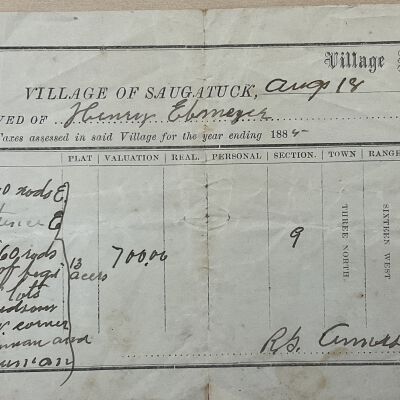 Village
VILLAGE OF SAUGATUCK, Aug 18
VED OF Henry Ebmeyer
Taxes assessed in said Village for the year ending 188
PLAT VALUATION REAL. PERSONAL SECTION. TOWN RANGE
60 rods E.
tence E
60 rods
of begi 13 acers 700.00 9 THREE NORTH SIXTEEN WEST
lots
udsons
corner
man and